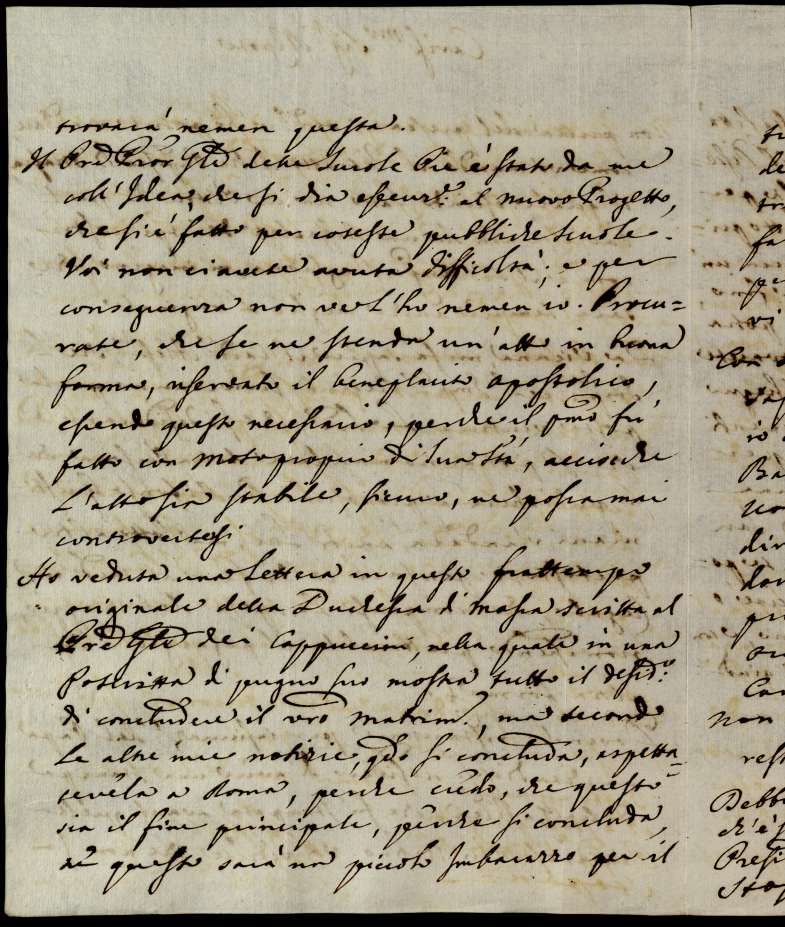 troverà nemen questa.
Il Prē Prōr Gñle delle Scuole Pie è stato da me
coll'Idea, che si dia esecuz.e al nuovo Progetto,
che si è fatto per coteste pubbliche Scuole.
Voi non ci avete avuta difficoltà; e per
conseguenza non ve l'ho nemen io. Procu=
rate, che se ne stenda un'atto in buona
forma, riservato il beneplacito apostolico,
essendo questo necessario, perche il pmō fù
fatto con motoproprio di Sua Stà, acciocche
l'atto sia stabile, sicuro, ne possa mai
controvertersi
Ho veduta una Lettera in questo frattempo
originale della Duchessa di Massa scritta al
Prē Gñle dei Cappuccini, nella quale in una
Poscritta di pugno suo mostra tutto il desid.o
di concludere il vrō matrim.o, ma secondo
le altre mie notizie, qdō si concluda, aspetta=
tevela a Roma, perche credo, che questo
sia il fine principale, perche si concluda,
ne questo sarà un piccolo Imbarazzo per il
tr
de
tr
fa
pe
vi
Con
io
Ba
no
dir
dar
pr
Ca
non
rest
Debb
ch'è
Presi
Stop